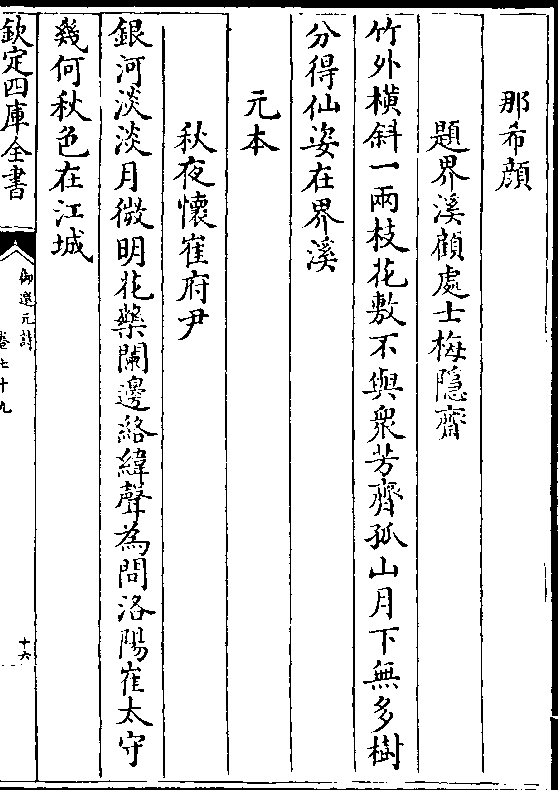 那希顔
題界溪顧處士梅隠齋
竹外橫斜一兩枝花敷不與衆芳齊孤山月下無多樹
分得仙姿在界溪
元本
秋夜懐崔府尹
銀河淡淡月微明花藥闌邊絡緯聲為問洛陽崔太守
幾何秋色在江城
欽定四庫全書
御選元詩
卷七十九
十六